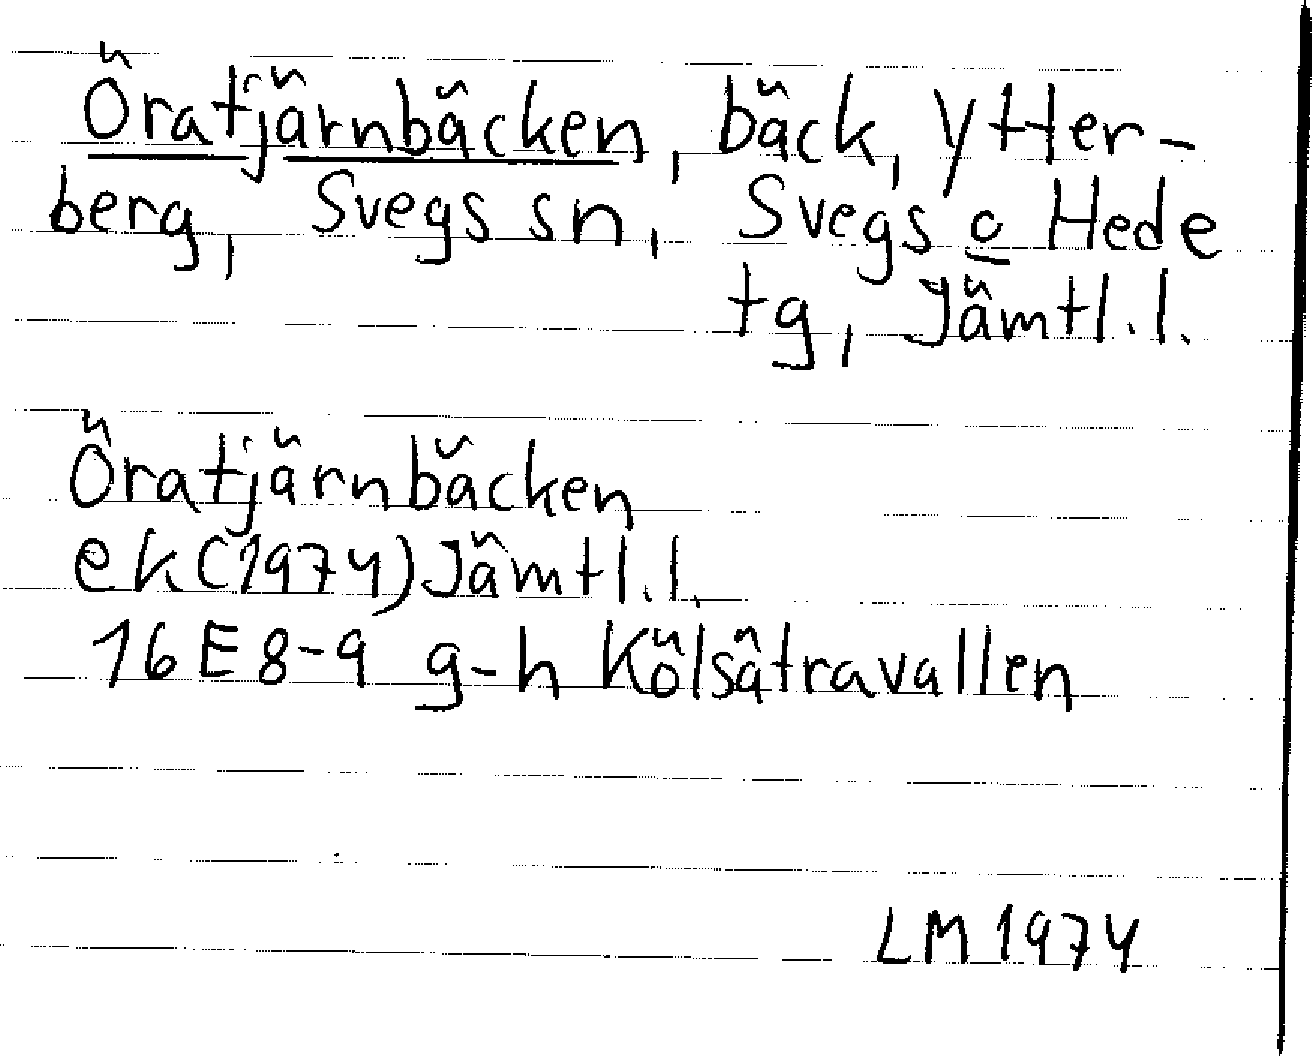 Öratjärnbäcken, bäck, Ytter-
berg, Svegs sn, Svegs o Hede
tg, Jämtl.l.
Öratjärnbäcken
ek(1974)Jämtl.l.
16E8-9 g-h Kölsätravallen
LM 1974